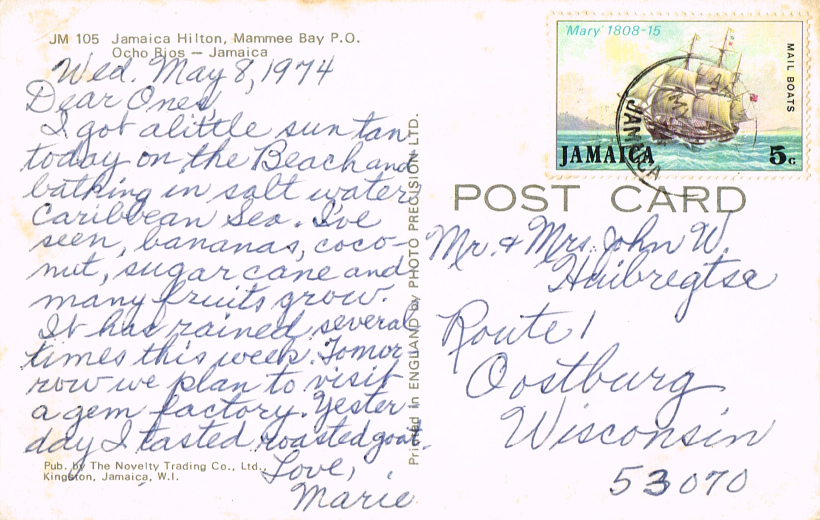 JM 105 Jamaica Hilton, Mammee Bay P.O.
Ocho Rios — Jamaica
Wed. May 8, 1974
Dear Ones,
I got alittle sun tan
today on the Beach and
bathing in salt water,
Caribbean Sea. I've
seen, bananas, coco-
nut, sugar cane and
many fruits grow.
It has rained several
times this week. Tomor
row we plan to visit
a gem factory. Yester-
day I tasted roasted goat.
Love,
Marie
Pub. by The Novelty Trading Co., Ltd.,
Kingston, Jamaica, W.I.
Printed in ENGLAND by PHOTO PRECISION LTD.
'Mary' 1808-15
MAIL BOATS
JAMAICA 5c
JAMAICA
POST CARD
Mr. & Mrs. John W.
Huibregtse
Route 1
Oostburg
Wisconsin
53070